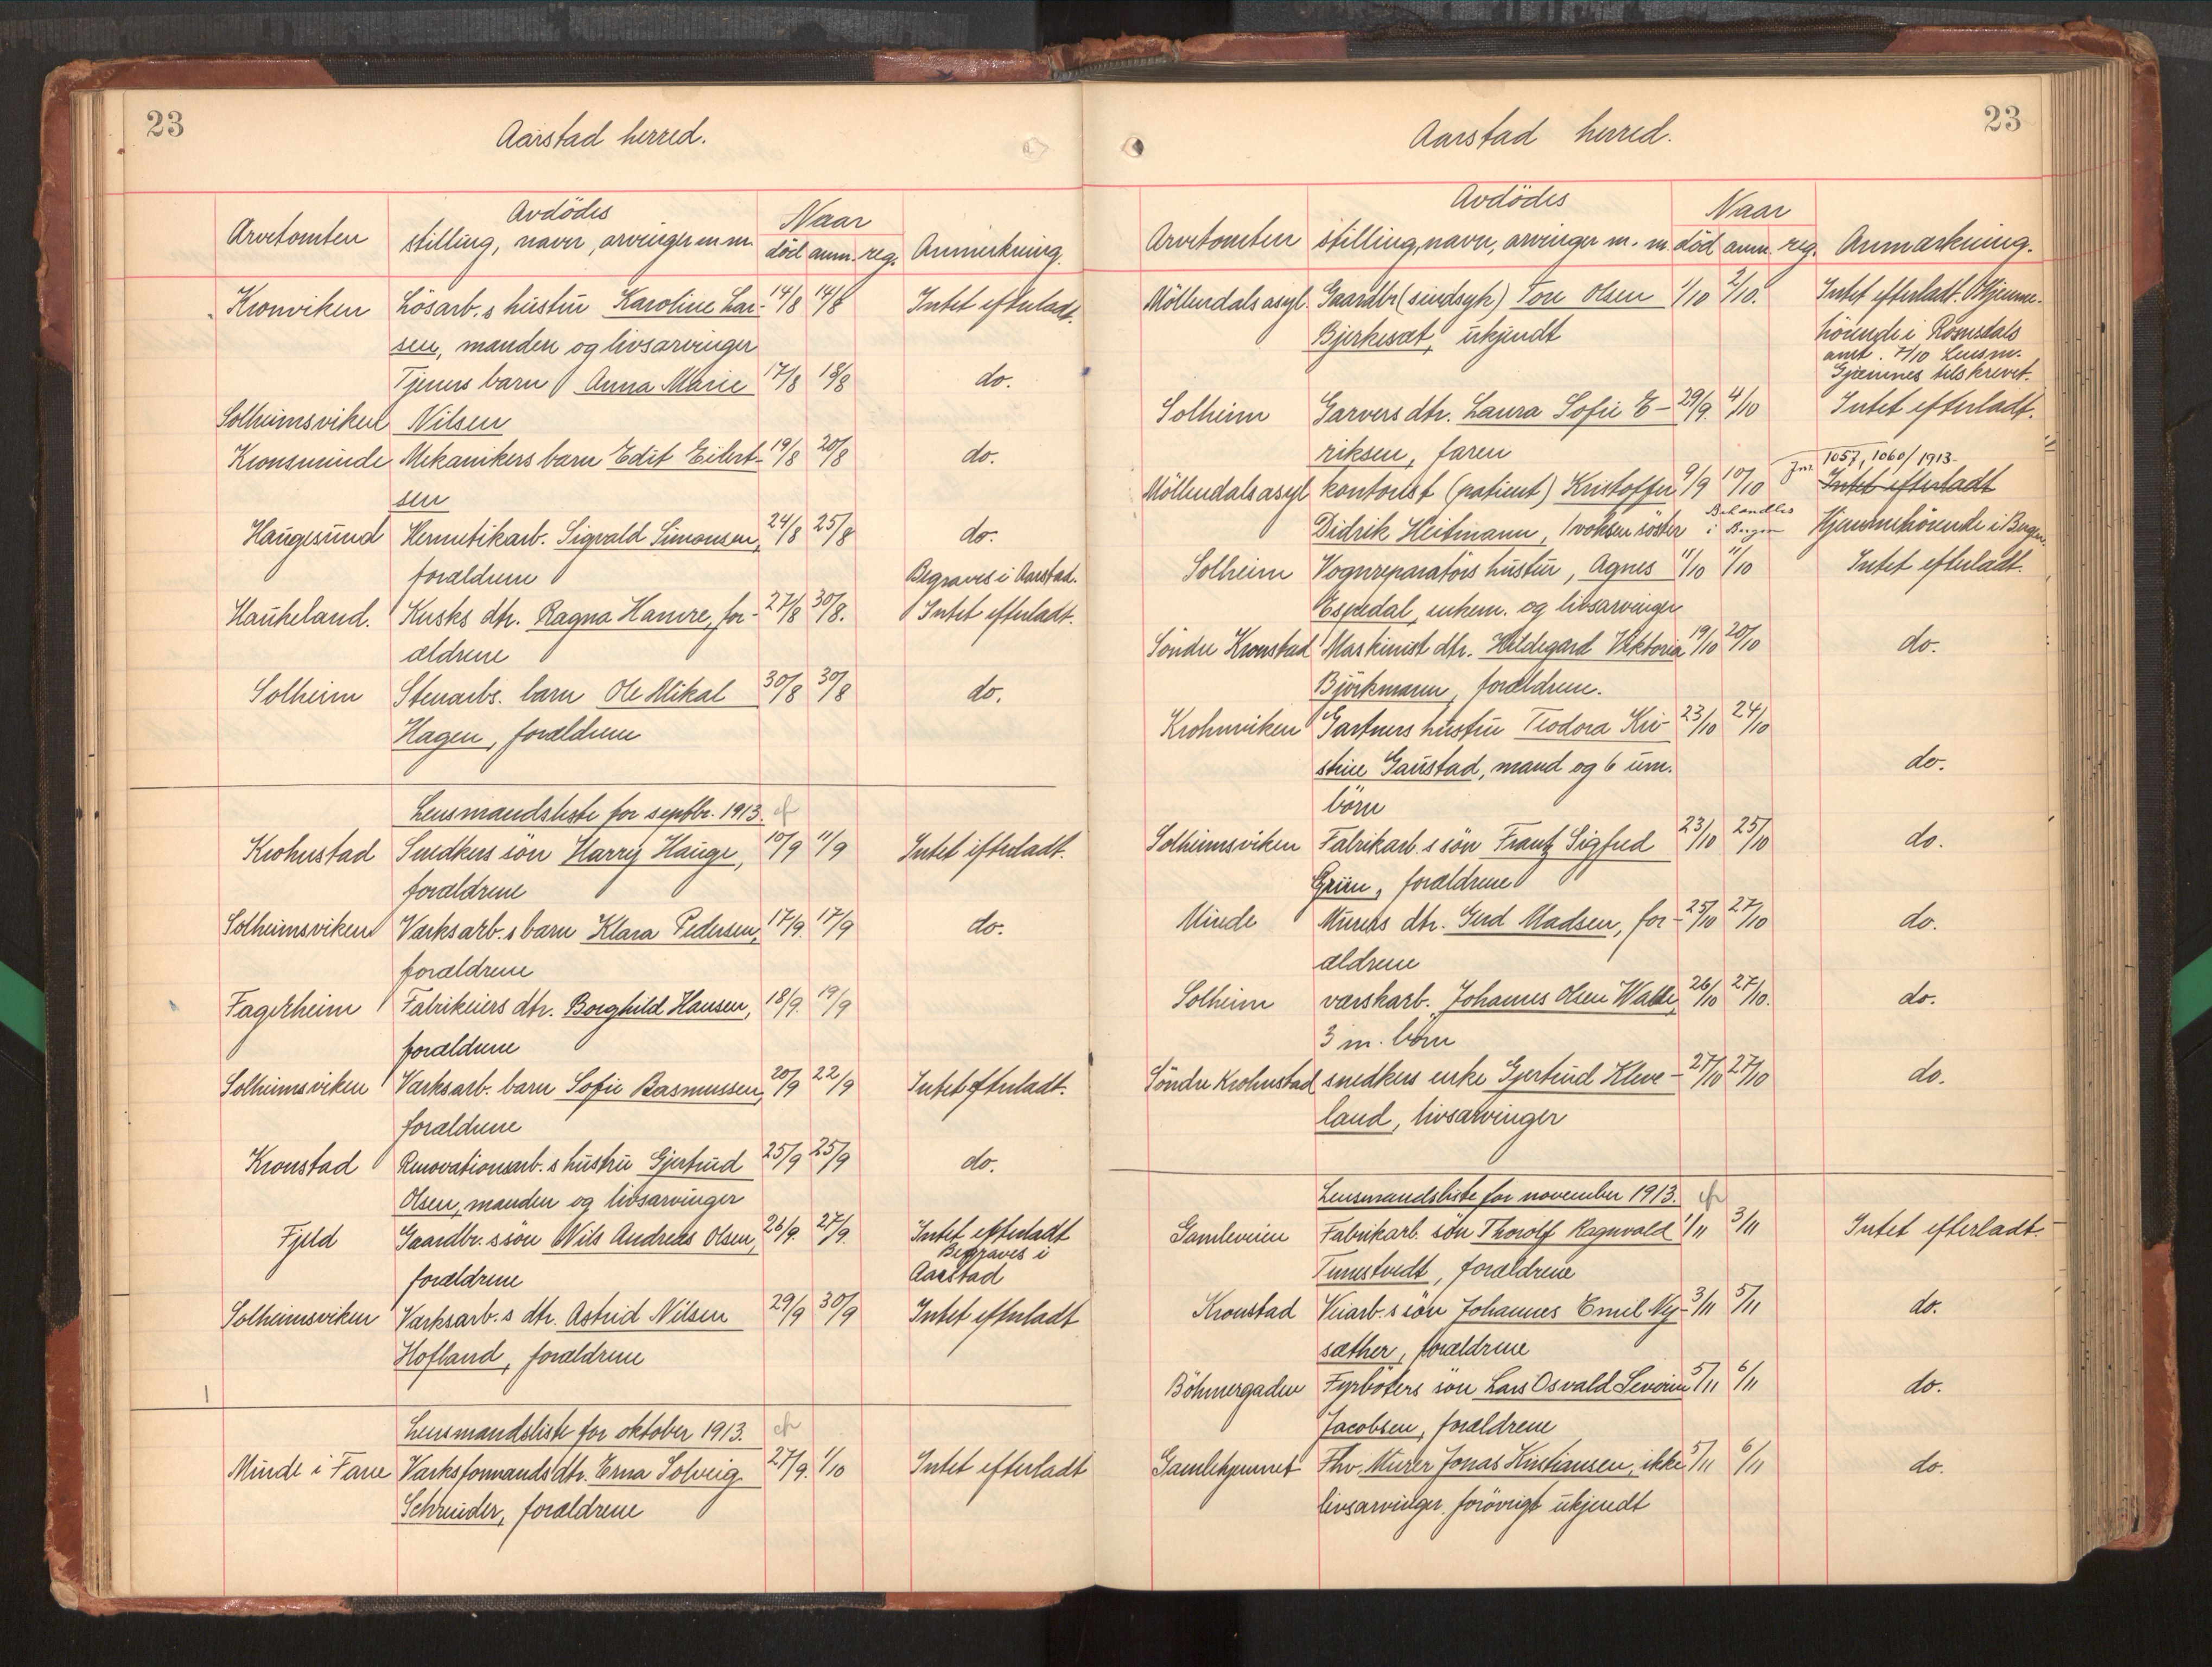 23
Aarstad herred.
Arvetomten
Avdödes
stilling, navn, arvinger m m.
Naar
död anm. reg.
Anmerkning.
Kronviken Lösarb.s hustru Karoline Lar- 14/8 14/8 Intet efterladt.
sen, manden og livsarvinger
Tjeners barn Anna Marie 17/8 18/8 do.
Solheimsviken Nilsen
Kronsminde Mekanikers barn Edit Eilert- 19/8 20/8 do.
sen
Haugesund Hermetikarb. Sigvald Simonsen, 24/8 25/8 do.
forældrene Begraves i Aarstad.
Haukeland. Kusks dtr. Ragna Hamre, for- 27/8 30/8. Intet efterladt.
ældrene
Solheim Stenarbs. barn Ole Mikal 30/8 30/8 do.
Hagen, forældrene
Lensmandsliste for septbr. 1913.
Krohnstad Snedkers sön Harry Hauge, 10/9 11/9 Intet efterladt.
forældrene
Solheimsviken Værksarb.s barn Klara Pedersen, 17/9. 17/9 do.
forældrene
Fagerheim Fabrikeiers dtr. Borghild Hansen, 18/9. 19/9
forældrene
Solheimsviken Værksarb. barn Sofie Rasmussen, 20/9 22/9 Intet efterladt.
forældrene
Kronstad Renovationsarb.s hustru Gjertrud 25/9 25/9 do.
Olsen, manden og livsarvinger
Fjeld Gaardbr.s sön Nils Andreas Olsen, 26/9. 27/9 Intet efterladt
Begraves i
forældrene Aarstad
Solheimsviken Værksarb.s dtr. Astrid Nilsen 29/9 30/9 Intet efterladt
Hofland, forældrene
Lensmandsliste for oktober 1913.
Minde i Fane Værksformands dtr. Erna Solveig 27/9. 1/10 Intet efterladt
Schreuder, forældrene
23
Aarstad herred.
Arvetomten
Avdödes
stilling, navn, arvinger m. m.
Naar
död anm. reg.
Anmærkning.
Möllendals asyl. Gaardbr. (sindsyk) Tore Olsen 1/10 2/10. Intet efterladt. Hjemme-
Bjerkesæt, ukjendt hörende i Romsdals
amt. 7/10 Lensm.
Gjæmnes tilskrevet.
Solheim Garvers dtr. Laura Sofie E- 29/9. 4/10 Intet efterladt.
riksen, faren
Jnr. 1057, 1060/1913.
Möllendals asyl kontorist (patient) Kristoffer 9/9 10/10 Intet efterladt
Didrik Heitmann, 1 voksen söster Behandles i Bergen Hjemmehörende i Bergen.
Solheim Vognreparatörs hustru, Agnes 11/10 11/10 Intet efterladt.
Espedal, enkem. og livsarvinger
Söndre Kronstad Maskinist dtr. Hildegard Viktoria 19/10 20/10 do.
Björkmann, forældrene.
Krohnviken Gartners hustru Teodora Kri- 23/10 24/10
stine Gaustad, mand og 6 um. do.
börn
Solheimsviken Fabrikarb.s sön Frantz Sigfred 23/10 25/10 do.
Grün, forældrene
Minde Murers dtr. Gerd Madsen, for- 25/10 27/10 do.
ældrene
Solheim værskarb. Johannes Olsen Walle, 26/10 27/10. do.
3 m. börn
Söndre Krohnstad snedkers enke Gjertrud Kleve- 27/10 27/10 do.
land, livsarvinger
Lensmandsliste for november 1913.
Gamleveien Fabrikarb. sön Thorolf Ragnvald 1/11 3/11 Intet efterladt.
Tunestvedt, forældrene
Kronstad Veiarb.s sön Johannes Emil Ny- 3/11 5/11 do.
sæther, forældrene
Böhmergaden Fyrböters sön Lars Osvald Severin 5/11 6/11 do.
Jacobsen, forældrene
Gamlehjemmet Fhv. Murer Jonas Kristiansen, ikke 5/11 6/11 do.
livsarvinger. forövrigt ukjendt